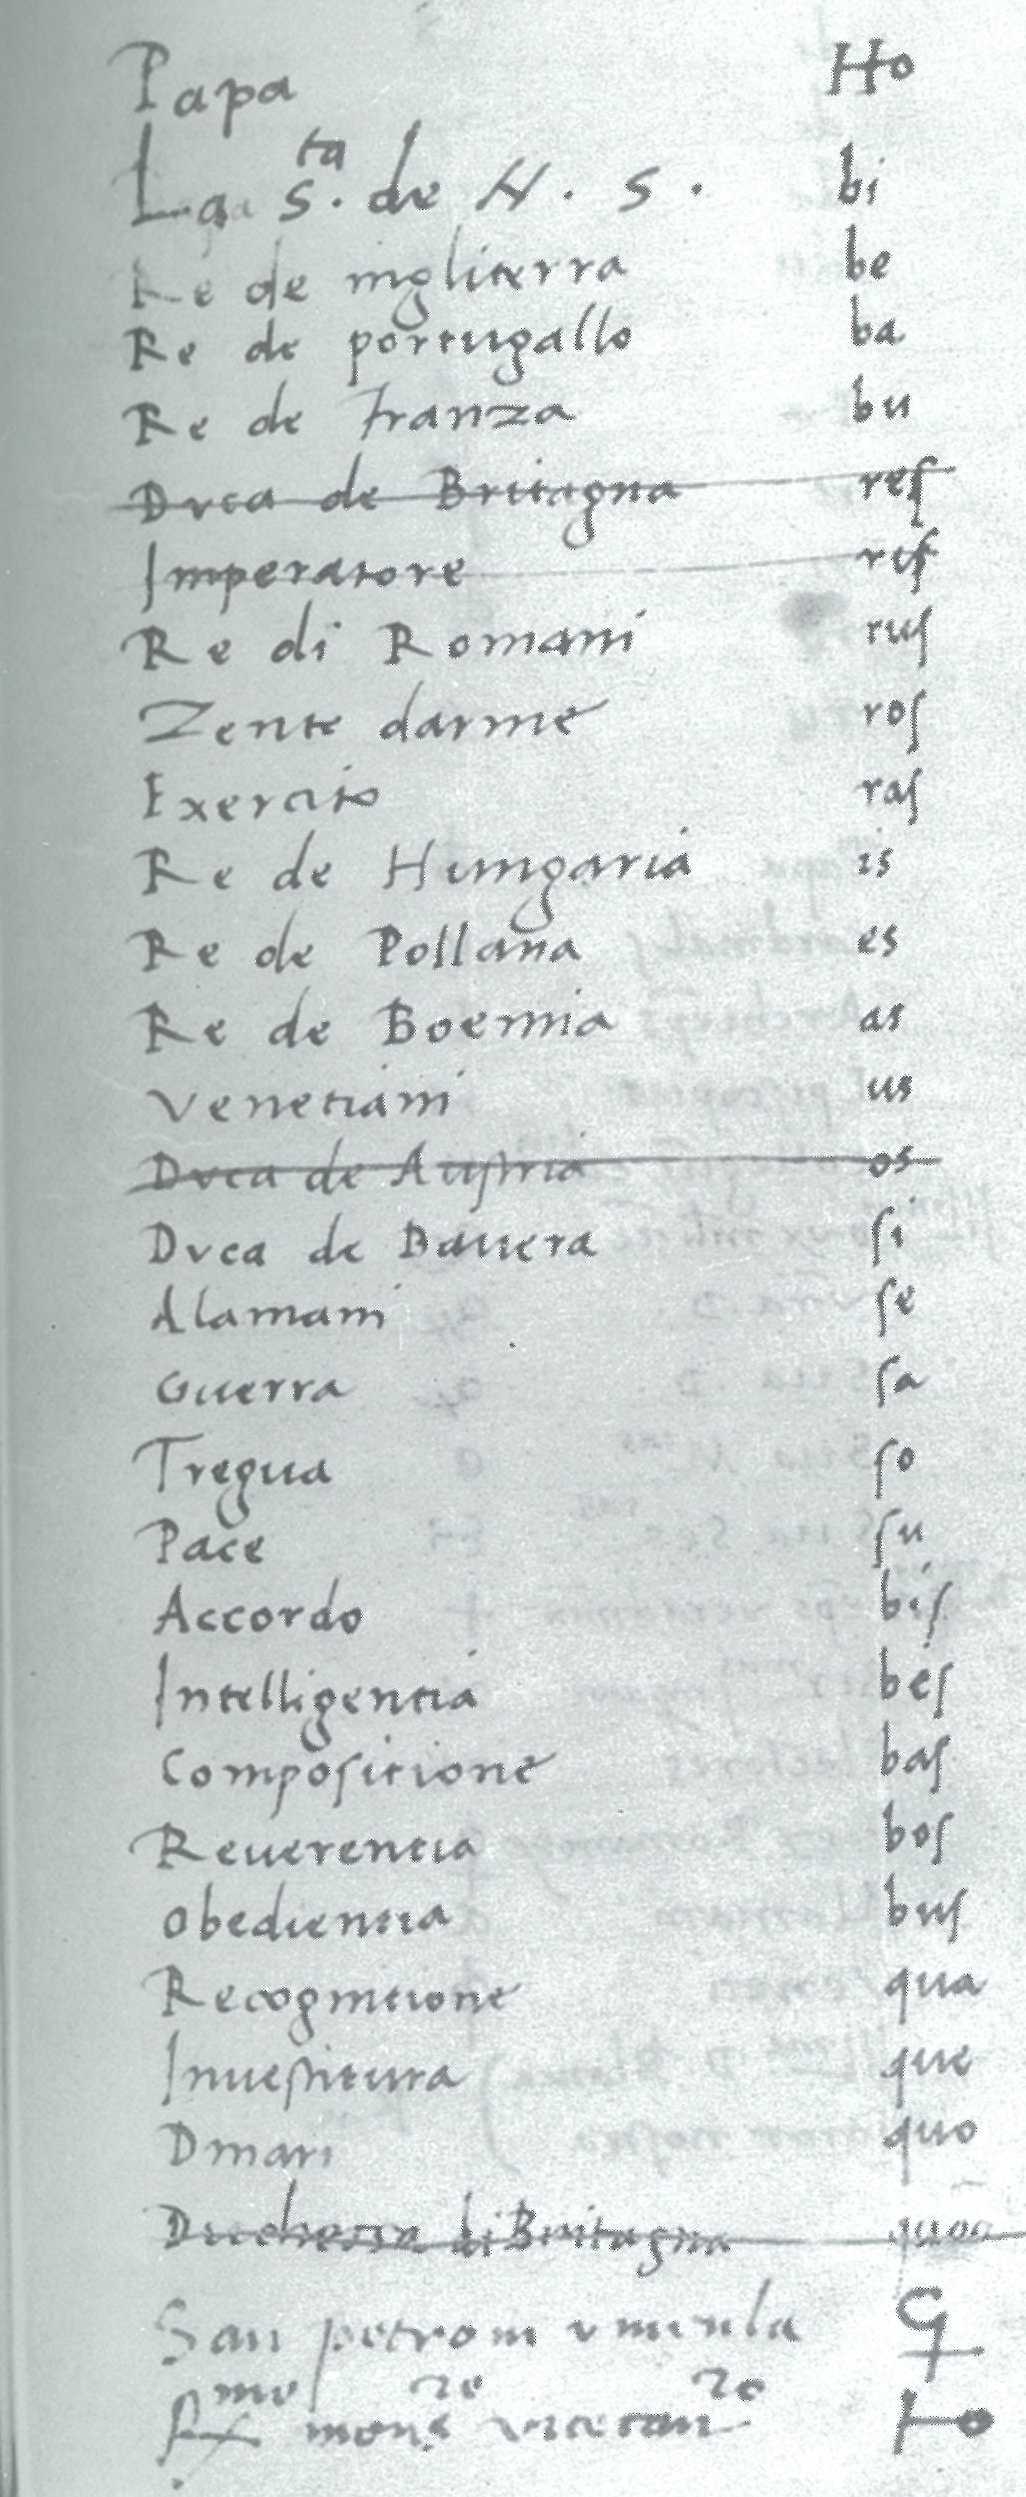 Papa Ho
La S.ta de N. S. bi
Re de ingliterra be
Re de portugallo ba
Re de franza bu
Duca de Britagna res
Imperatore ris
Re di Romani rus
Zente darme ros
Exercito ras
Re de Hungaria is
Re de Pollana es
Re de Boemia as
Venetiani us
Duca de Austria os
Duca de Bauera si
Alamani se
Guerra sa
Tregua so
Pace su
Accordo bis
Intelligentia bes
Compositione bas
Reuerentia bos
Obedientia bus
Recognitione qua
Inuestitura que
Dinari quo
Duchessa di Britagna
San petro in vincula
mons